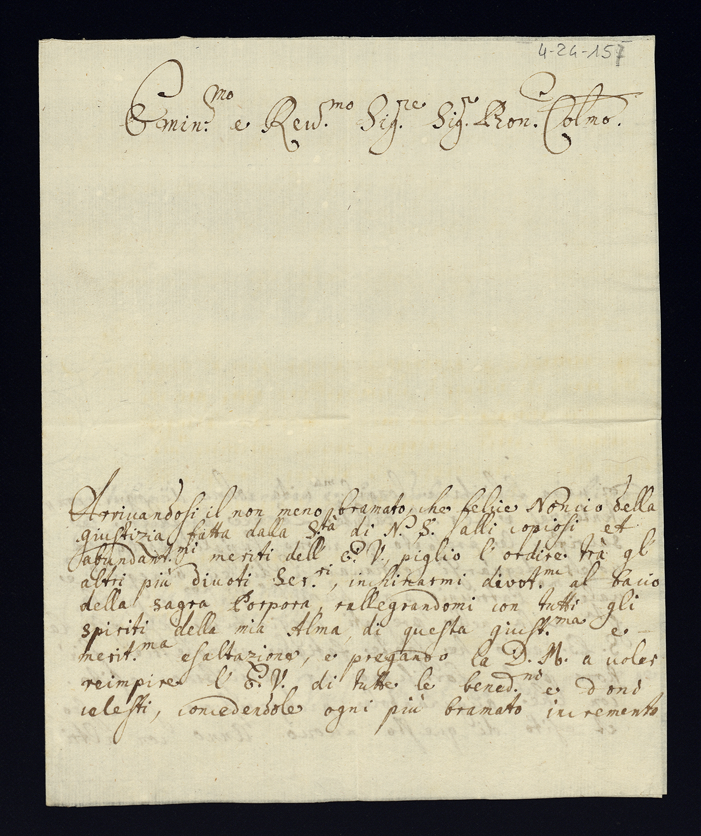 4-24-157
Emin.mo e Rev.mo Sig.re Sig.r Pron. Colmo.
Arrivandosi il non meno bramato, che felsie Noncio della
giustizia fatta dalla S.tà di N. S. alli copiosi et
abundant.mi meriti dell' E. V., piglio l'ordire trà gl'
altri più divoti Ser.ri, inchinarmi devot.me al bacio
della sagra Porpora, rallegrandomi con tutti gli
spiriti della mia Alma, di questa giust.ma e
merit.ma esaltazione, e pregando la D. M. a voler
reimpire l' E. V. di tutte le bened.ni e doni
celesti, concedendole ogni più bramato incremento